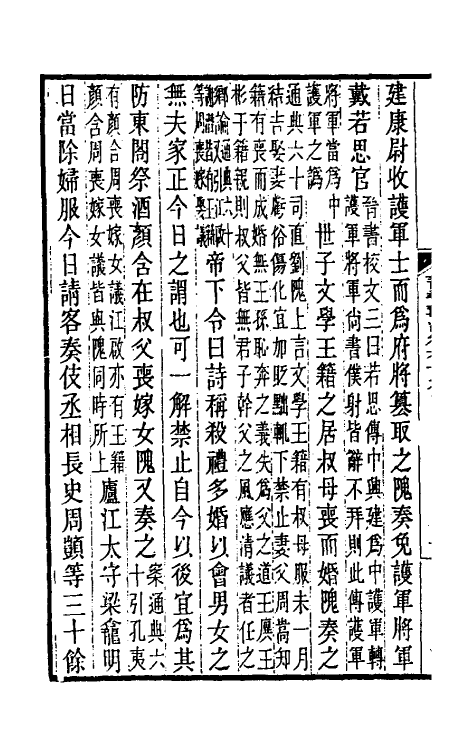 建康尉收護軍士而爲府將篡取之隗奏免護軍將軍
戴若思官
晉書校文三曰若思傳中興建爲中護軍轉
護軍將軍尚書僕射皆辭不拜則此傳護軍
將軍當爲中
護軍之譌
世子文學王籍之居叔母喪而婚隗奏之
通典六十司直劉隗上言文學王籍有叔母服未一月
結吉娶妻虧俗傷化宜加貶黜輒下禁止妻父周嵩知
籍有喪而成婚無王孫恥奔之義失爲父之道王廙王
彬于籍親則叔父皆無君子幹父之風應清議者任之
鄉論通典六
等周喪嫁娶議
帝下令曰詩稱殺禮多婚以會男女之
無夫家正今日之謂也可一解禁止自今以後宜爲其
防東閤祭酒顏含在叔父喪嫁女隗又奏之
案通典六
十引孔夷
有顏含周喪嫁女議江啟亦有王籍
顏含周喪嫁女議皆與隗同時所上
廬江太守梁龕明
日當除婦服今日請客奏伎丞相長史周顗等三十餘